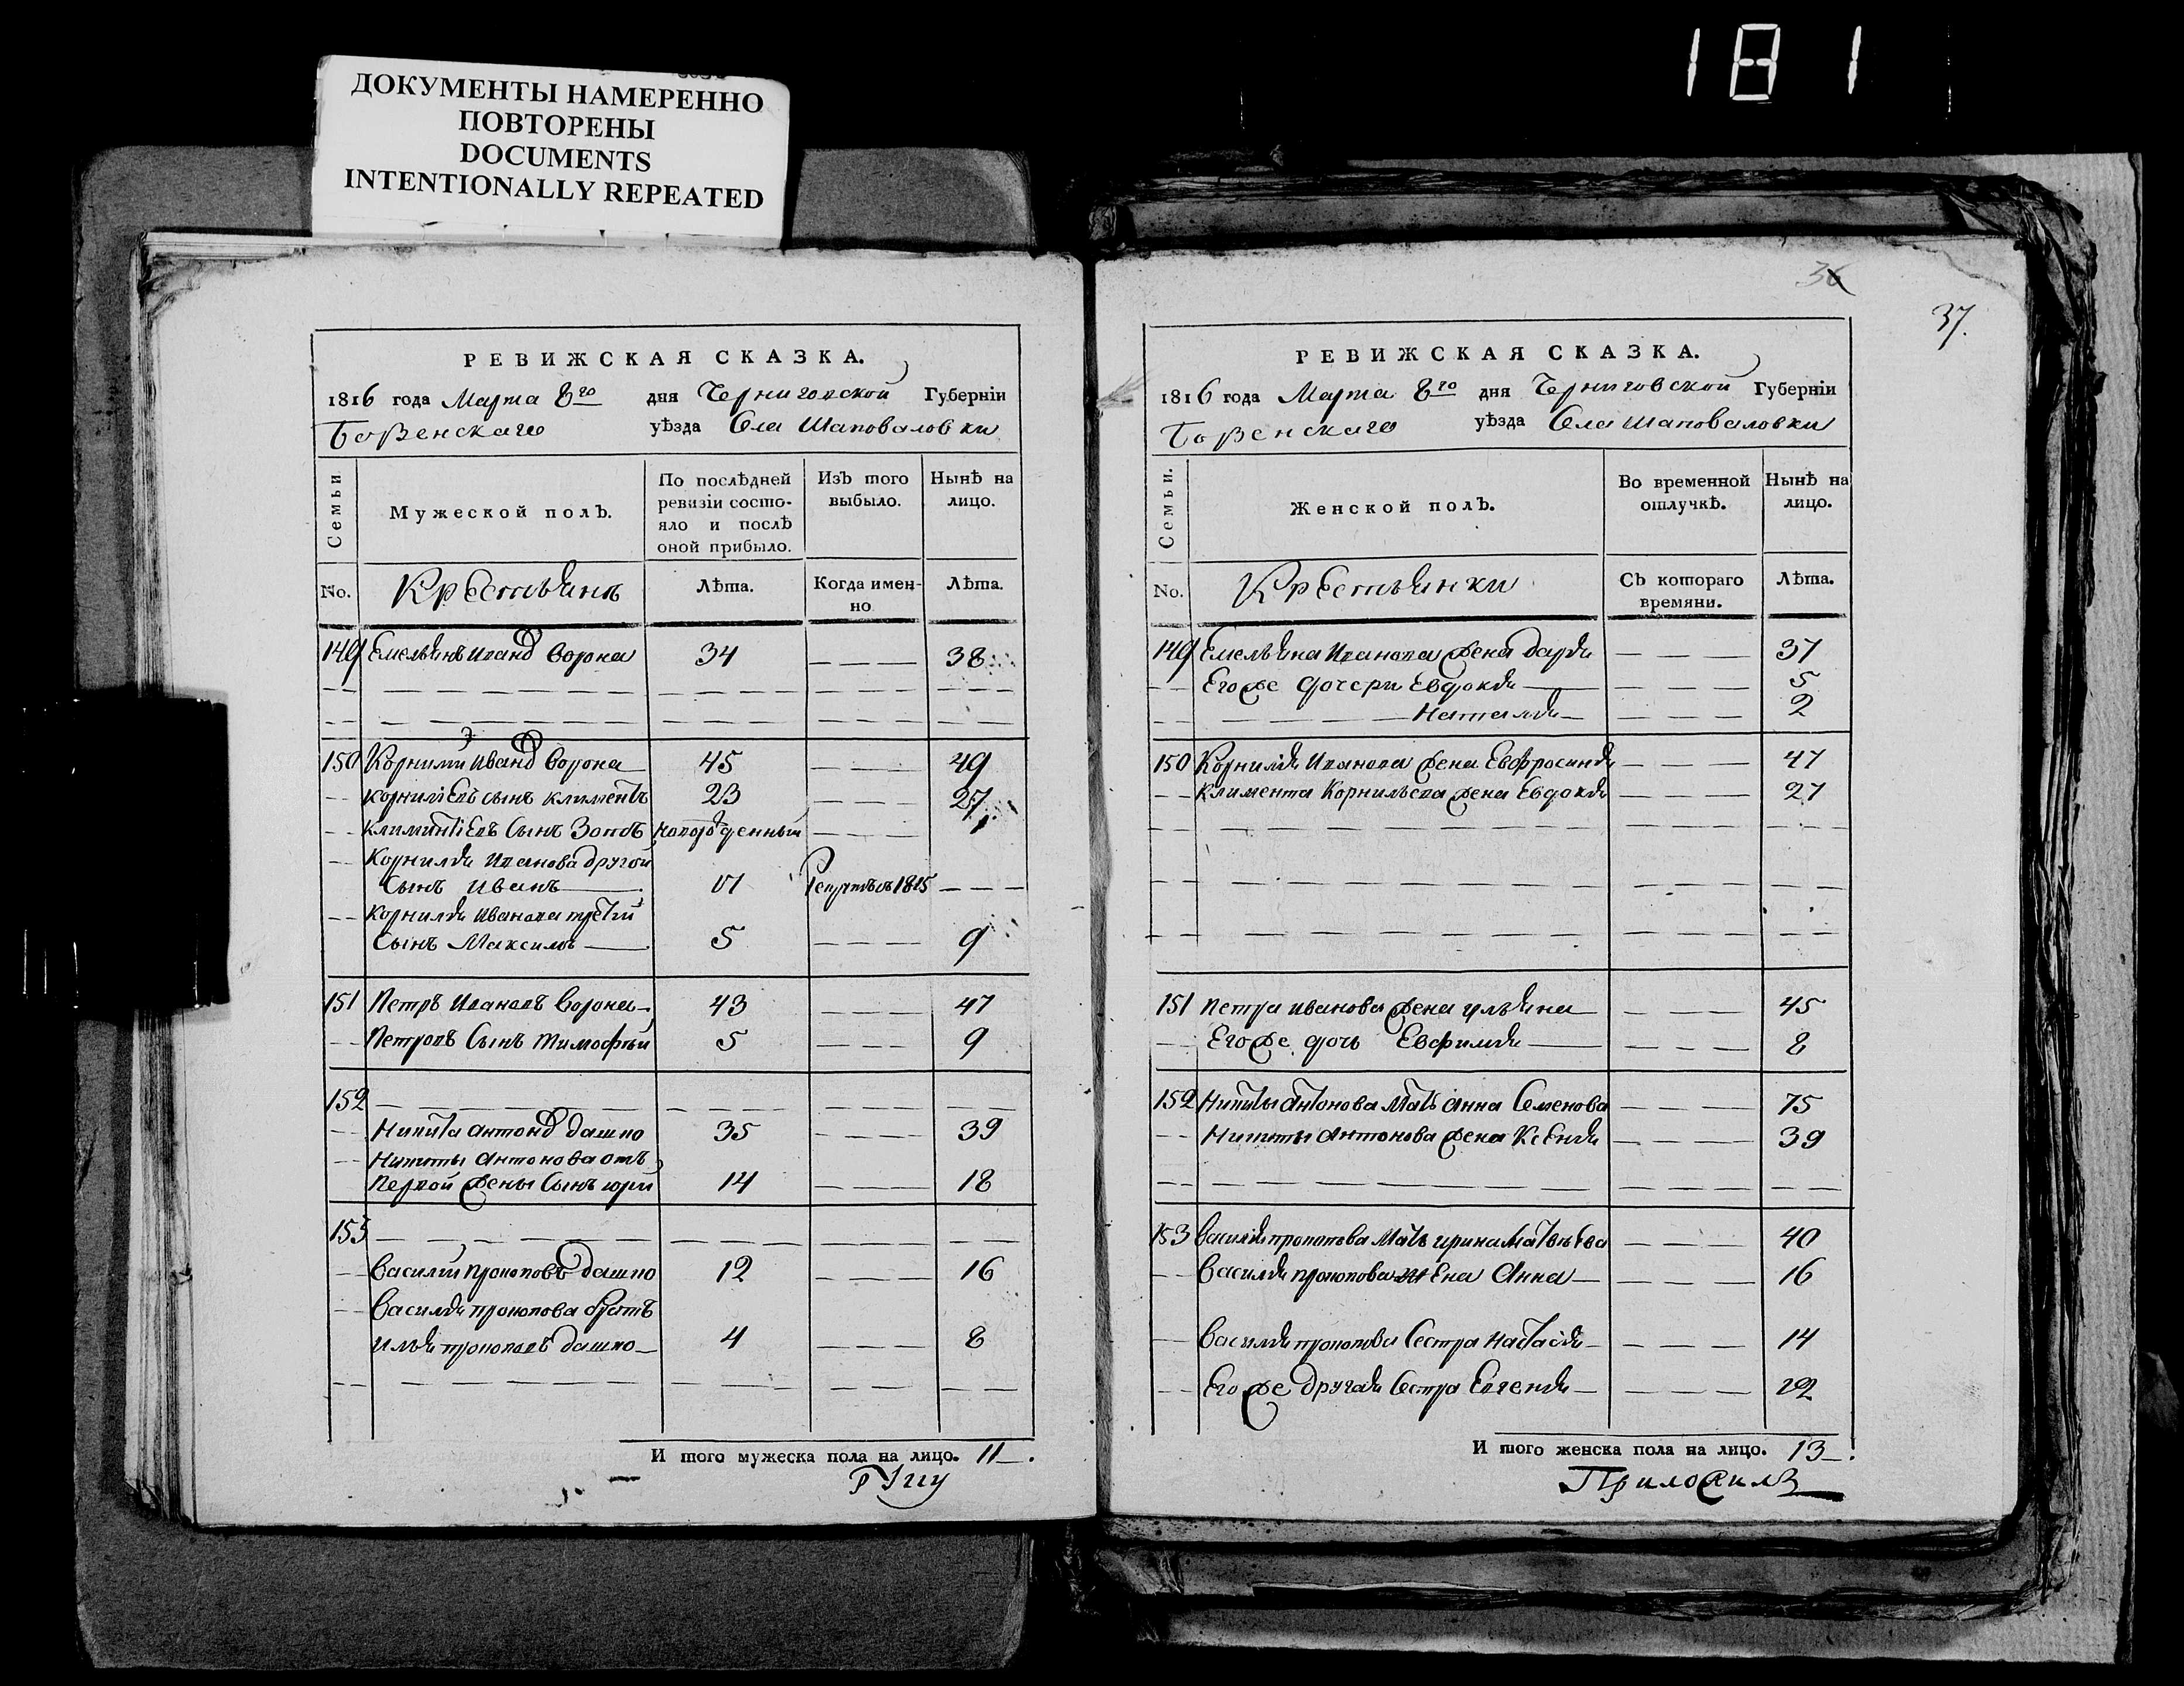 181
ДОКУМЕНТЫ НАМЕРЕННО
ПОВТОРЕНЫ
DOCUMENTS
INTENTIONALLY REPEATED
РЕВИЖСКАЯ СКАЗКА.
1816 года Марта 8го дня Черниговской Губерніи
Борзенскаго уѣзда Села Шаповаловки
Семьи
Мужеской полъ.
По послѣдней ревизіи состояло и послѣ оной прибыло.
Изъ того выбыло.
Нынѣ на лицо.
No. Крестьянъ Лѣта. Когда именно Лѣта.
149 Емельянъ Иванов Ворона 34 — — — 38
150 Корнилий Иванов Ворона 45 — — — 49
Корнилиевъ сынъ Климентъ 23 — — 27
Климентіевъ Сынъ Зотовъ новорожденный — — —
Корнилия Иванова другой
Сынъ Иванъ 17 1815 — — —
Корнилия Иванова третий
Сынъ Максимъ 5 — — — 9
151 Петръ Ивановъ Ворона 43 — — — 47
Петровъ Сынъ Тимофей 5 — — — 9
152
Никита Антонов Дашко 35 — — — 39
Никиты Антонова отъ
Первой жены Сынъ Юрий 14 — — — 18
153
Василий Прокоповъ Дашко 12 — — — 16
Василия Прокопова братъ
Илья Прокоповъ Дашко 4 — — — 8
И того мужеска пола на лицо. 11.
36
37.
РЕВИЖСКАЯ СКАЗКА.
1816 года Марта 8го дня Черниговской Губерніи
Борзенскаго уѣзда Села Шаповаловки
Семьи.
Женской полъ.
Во временной отлучкѣ.
Нынѣ на лицо.
No. Крестьянки Съ котораго времяни. Лѣта.
149 Емельяна Иванова жена Дарья — — — 37
Его же дочери Евдокия — — — 5
Наталия — — — 2
150 Корнилия Иванова жена Евфросиния — — — 47
Климента Корнильева жена Евдокия — — — 27
151 Петра Иванова жена Ульяна — — — 45
Его же дочь Евфимия — — — 8
152 Никиты Антонова Мать Анна Семенова — — — 75
Никиты Антонова жена Ксения — — — 39
153 Василия Прокопова Мать Ирина Матвеева — — — 40
Василия Прокопова жена Анна — — — 16
Василия Прокопова Сестра Настасия — — — 14
Его же другая Сестра Евгения — — — 12
И того женска пола на лицо. 13.
Приложилъ